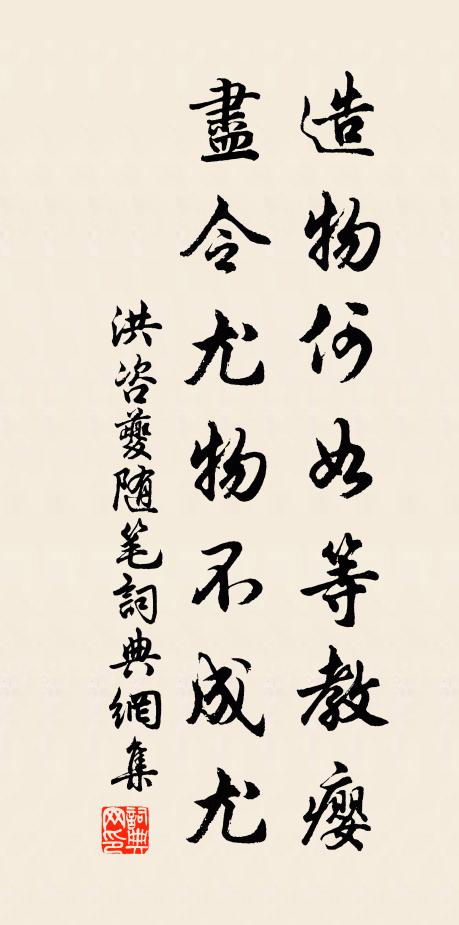 造物何如等教癭
盡令尤物不成尤
洪咨夔随笔詞典網集
詞典網印